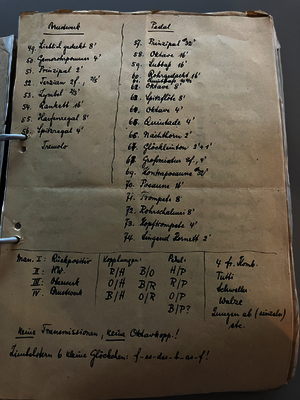 Brustwerk
49. Lieblich gedeckt 8'
50. Gemshornquinte 4'
51. Prinzipal 2'
52. Terzian
53. Zymbel 2/3'
54. Rankett 16'
55. Harfenregal 8'
56. Spitzregal 4'
Tremolo
Pedal
57. Prinzipal 32'
58. Oktave 16'
59. Subbaß 16'
60. Rohrgedackt 16'
61.
62. Oktave 8'
63. Spitzflöte 8'
64. Oktave 4'
65. Quintade 4'
66. Nachthorn 2'
67.
68.
69. Kontraposaune 32'
70. Posaune 16'
71. Trompete 8'
72. Rohrschalmei 8'
73. Kopftrompete 4'
74. Singend Kornett 2'
Man. I: Rückpositiv
II: HW.
III: Oberwerk
IV: Brustwerk
Kopplungen:
R/H B/O
O/H B/R
B/H O/R
Ped.
H/P
R/P
O/P
B/P?
4 fr. Komb.
Tutti
Schweller
Walze
Zungen ab (einzeln)
etc.
Keine Transmissionen, keine Oktavkopp.!
Zimbelstern 6 kleine Glöckchen: f-es-des-b-as-f!